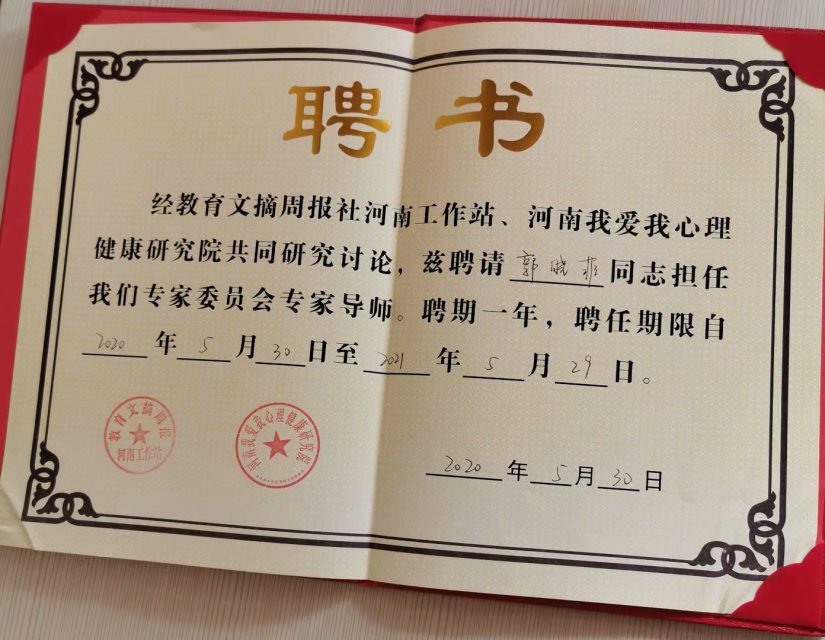 聘书
经教育文摘周报社河南工作站、河南我爱我心理
健康研究院共同研究讨论，兹聘请郭晓菲同志担任
我们专家委员会专家导师。聘期一年，聘任期限自
2020年5月30日至2021年5月29日。
教育文摘周报
河南工作站
河南我爱我心理健康研究院
2020年5月30日